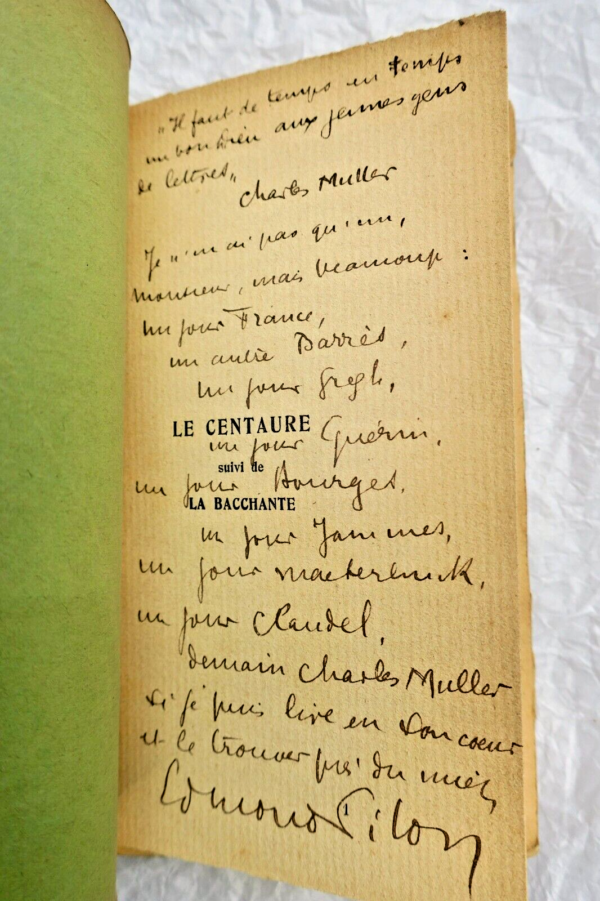 "Il faut de temps en temps
un bon Dieu aux jeunes gens
de lettres"
Charles Muller
Je n'en ai pas qu'un,
monsieur, mais beaucoup :
un jour France,
un autre Barrès,
un jour Gregh,
LE CENTAURE
un jour Guérin,
suivi de
un jour Bourges,
LA BACCHANTE
un jour Jammes,
un jour Maeterlinck,
un jour Claudel,
demain Charles Muller
si je puis lire en son coeur
et le trouver près du mien,
Edmond Pilon
1